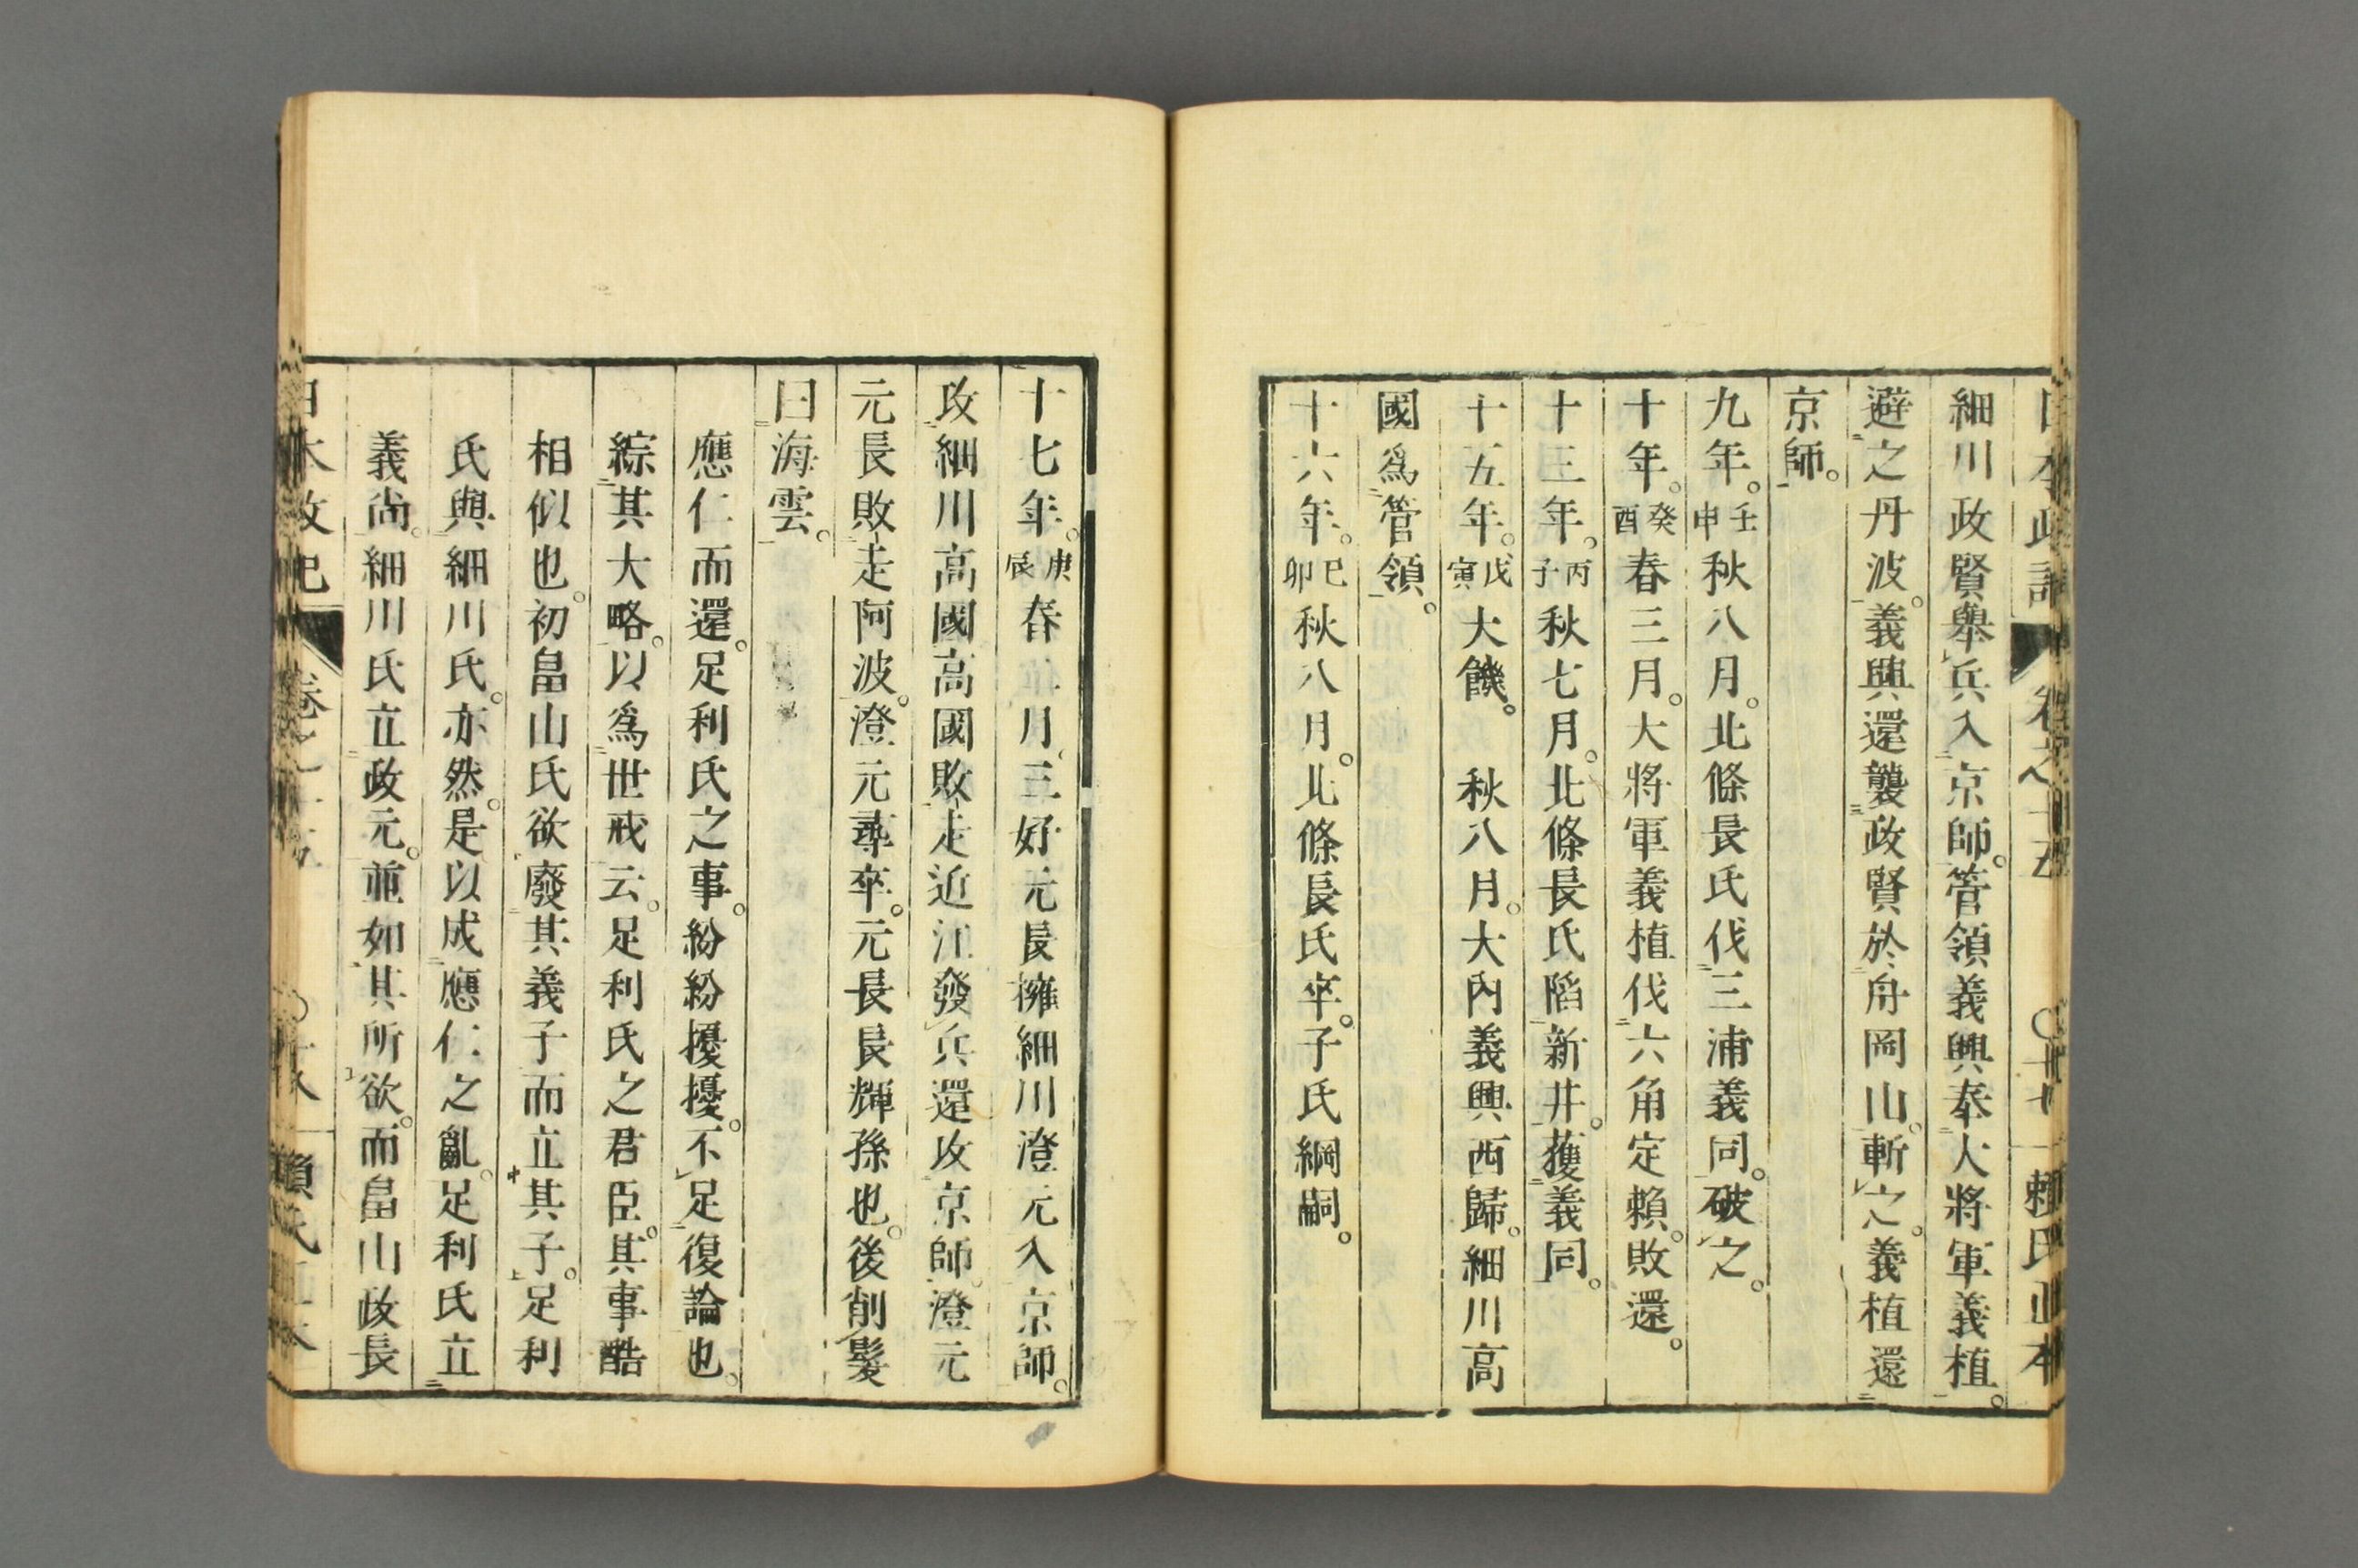 日本政記 卷之十五 〇十七 賴氏正本
細川政賢舉兵入京師。管領義興奉大將軍義植。
避之丹波。義興還襲政賢於舟岡山。斬之。義植還
京師。
九年。壬申秋八月。北條長氏伐三浦義同。破之。
十年。癸酉春三月。大將軍義植伐六角定賴。敗還。
十三年。丙子秋七月。北條長氏陷新井。獲義同。
十五年。戊寅大饑。 秋八月。大內義興西歸。細川高
國爲管領。
十六年。己卯秋八月。北條長氏卒。子氏綱嗣。
十七年。庚辰春 月。三好元長擁細川澄元入京師。
攻細川高國高國敗走近江發兵還攻京師。澄元
元長敗走阿波。澄元尋卒。元長長輝孫也。後削髮
曰海雲。
應仁而還。足利氏之事。紛紛擾擾。不足復論也。
綜其大略。以爲世戒云。足利氏之君臣。其事酷
相似也。初畠山氏欲廢其義子而立其子。足利
氏與細川氏。亦然。是以成應仁之亂。足利氏立
義尚。細川氏立政元。並如其所欲。而畠山政長
日本政記 卷之十五 賴氏正本